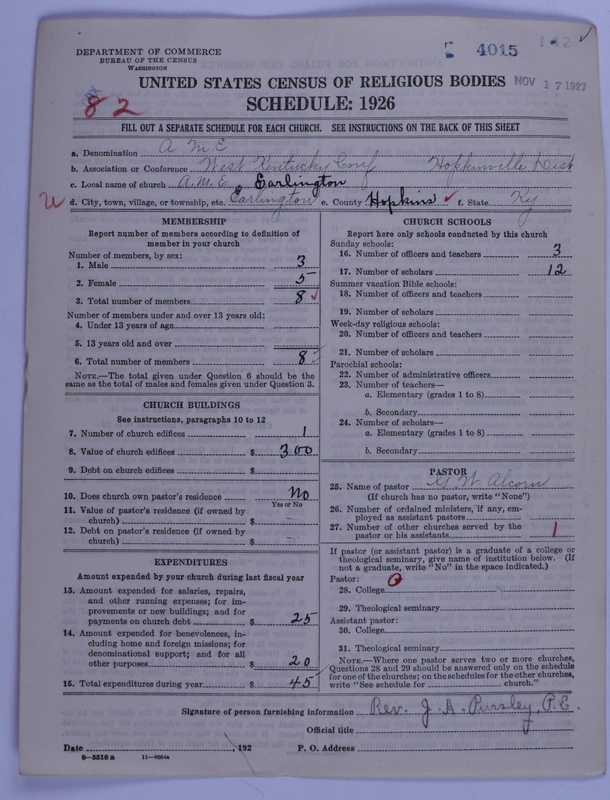 DEPARTMENT OF COMMERCE
BUREAU OF THE CENSUS
WASHINGTON
4015
142
NOV 17 1927
UNITED STATES CENSUS OF RELIGIOUS BODIES
SCHEDULE: 1926
82
FILL OUT A SEPARATE SCHEDULE FOR EACH CHURCH. SEE INSTRUCTIONS ON THE BACK OF THIS SHEET
a. Denomination A M E
b. Association or Conference West Kentucky Conf Hopkinville Dist
c. Local name of church A. M. E Earlington
d. City, town, village, or township, etc. Earlington e. County Hopkins f. State Ky
MEMBERSHIP
Report number of members according to definition of
member in your church
Number of members, by sex:
1. Male 3
2. Female 5
3. Total number of members 8
Number of members under and over 13 years old:
4. Under 13 years of age
5. 13 years old and over
6. Total number of members 8
NOTE.—The total given under Question 6 should be the
same as the total of males and females given under Question 3.
CHURCH BUILDINGS
See instructions, paragraphs 10 to 12
7. Number of church edifices 1
8. Value of church edifices $ 300
9. Debt on church edifices $
10. Does church own pastor's residence No
Yes or No
11. Value of pastor's residence (if owned by
church) $
12. Debt on pastor's residence (if owned by
church) $
EXPENDITURES
Amount expended by your church during last fiscal year
13. Amount expended for salaries, repairs,
and other running expenses; for im-
provements or new buildings; and for
payments on church debt $ 25
14. Amount expended for benevolences, in-
cluding home and foreign missions; for
denominational support; and for all
other purposes $ 20
15. Total expenditures during year $ 45
CHURCH SCHOOLS
Report here only schools conducted by this church
Sunday schools:
16. Number of officers and teachers 3
17. Number of scholars 12
Summer vacation Bible schools:
18. Number of officers and teachers
19. Number of scholars
Week-day religious schools:
20. Number of officers and teachers
21. Number of scholars
Parochial schools:
22. Number of administrative officers
23. Number of teachers—
a. Elementary (grades 1 to 8)
b. Secondary
24. Number of scholars—
a. Elementary (grades 1 to 8)
b. Secondary
PASTOR
25. Name of pastor G. W. Alcorn
(If church has no pastor, write "None")
26. Number of ordained ministers, if any, em-
ployed as assistant pastors
27. Number of other churches served by the
pastor or his assistants 1
If pastor (or assistant pastor) is a graduate of a college or
theological seminary, give name of institution below. (If
not a graduate, write "No" in the space indicated.)
Pastor: 0
28. College
29. Theological seminary
Assistant pastor:
30. College
31. Theological seminary
NOTE.—Where one pastor serves two or more churches,
Questions 28 and 29 should be answered only on the schedule
for one of the churches; on the schedules for the other churches,
write "See schedule for church."
Signature of person furnishing information Rev. J. A. Pursley, P. E.
Official title
Date , 192 P. O. Address
8—5518 a 11—9554a